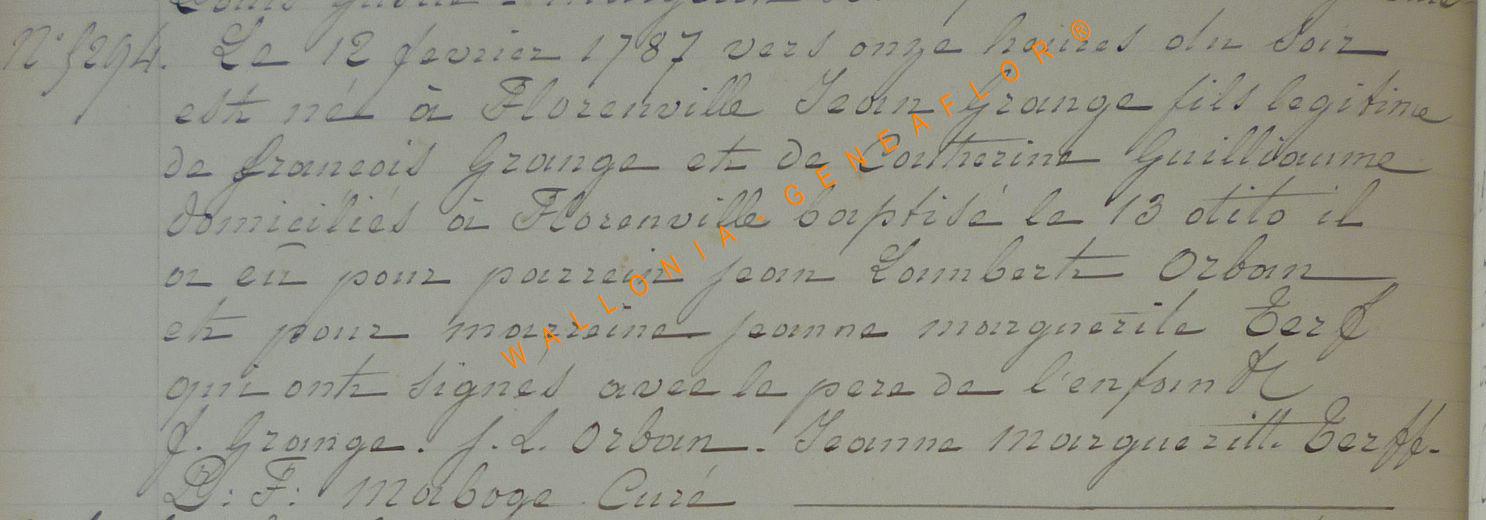 N° 5294. Le 12 fevrier 1787 vers onze heures du soir
est né à Florenville Jean Grange fils legitime
de francois Grange et de Catherine Guilliaume
domiciliés à Florenville baptisé le 13 dito il
a eu pour parrein jean Lambert Orban
et pour marreine jeanne marguerite Terf
qui ont signés avec le pere de l'enfant
f. Grange. j. L. Orban. Jeanne Margueritt. Terff.
D: F: Maboge Curé
WALLONIA-GENEAFLOR®